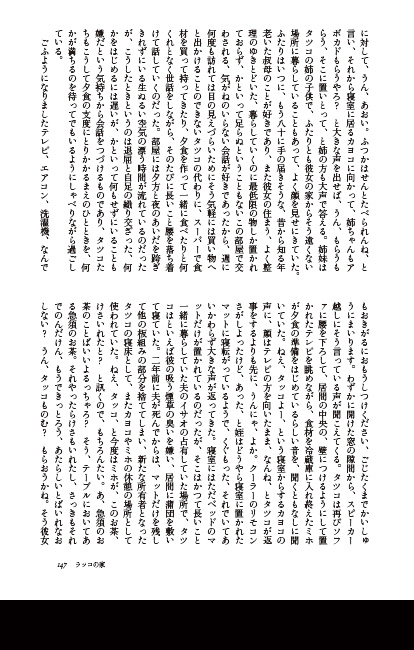 に対して、うん、あおい。ふつかはぜんとたべられんねん、と
言い、それから寝室に居るカヨコに向かって、姉ちゃんもア
ボカドもらうやろ？　と大きな声を出せば、うん、もらうも
らう、そこに置いとって、と姉の方も大声で答える。姉妹は
タツコの姉の子供で、ふたりとも彼女の家からそう遠くない
場所に暮らしていることもあって、よく顔を見せにきていた。
ふたりはいつに、もう八十に手の届きそうな、昔から知る年
老いた叔母のことが好きであり、また彼女の住まう、よく整
理のゆきとどいた、暮らしていくのに最低限の物しか置かれ
ておらず、かといって足らぬということもないこの部屋で交
わされる、気がねのいらない会話が好きであったから、週に
何度も訪れては目の見えづらいためにそう気軽には買い物へ
と出かけることのできないタツコの代わりに、スーパーで食
材を買って持ってきたり、夕食を作って一緒に食べたりと何
くれとなく世話をしながら、そのたびに長いこと腰を落ち着
けて話していくのだった。部屋には夕方と夜のあいだを跨ぎ
きれずにいる生ぬるい空気の漂う時間が流れているのだった
が、こうしたときというのは退屈と自足の織り交ざった、何
かをはじめるには遅いが、かといって何もせずにいることも
嫌だという気持ちから会話をつづけるものであり、タツコた
ちもこうして夕食の支度にとりかかるまえのひとときを、何
かが満ちるのを待ってでもいるようにしゃべりながら過ごし
ている。
ごふようになりましたテレビ、エアコン、洗濯機、なんで
もおきがるにおもうしつけください、ごじたくまでかいしゅ
うにまいります。わずかに開けた窓の隙間から、スピーカー
越しにそう言っている声が聞こえてくる。タツコは再びソフ
ァに腰を下ろして、居間の中央の、壁につけるようにして置
かれたテレビを眺めながら、食材を冷蔵庫に入れ終えたミホ
が夕食の準備をはじめているらしい音を、聞くともなしに聞
いていた。ねえ、タツコよー、という寝室からするカヨコの
声に、顔はテレビの方を向いたまま、なんね、とタツコが返
事をするよりも先に、うんにゃ、よか。クーラーのリモコン
さがしよったけど、あった、と姪はどうやら寝室に置かれた
マットに寝転がっているようで、くぐもった、それでいてあ
いかわらず大きな声が返ってきた。寝室にはただベッドのマ
ットだけが置かれているのだったが、そこはかつて長いこと
一緒に暮らしていた夫のイサオの占有していた場所で、タツ
コはといえば彼の吸う煙草の臭いを嫌い、居間に蒲団を敷い
て寝ていた。二年前に夫が死んでからは、マットだけを残し
て他の板組みの部分を捨ててしまい、新たな所有者となった
タツコの寝床として、またカヨコやミホの休憩の場所として
使われていた。ねえ、タツコ、と今度はミホが、このお茶、
けさいれたと？　と訊くので、もちろんたい。あ、急須のお
茶のことばいいよるっちゃろ？　そう、テーブルにおいてあ
る急須のお茶。それやったらけさもいれたし、さっきもそれ
でのんだけん、もうできっとろう、あたらしいとばいれなお
しない？　うん、タッコものむ？　もらおうかね。そう彼女
147　ラッコの家